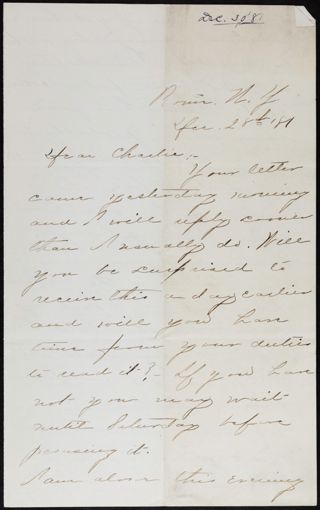 Dec. 30 '81
Rome. N. Y
Dec. 28th '81
Dear Charlie,-
Your letter
came yesterday morning
and I will reply sooner
than I usually do. Will
you be surprised to
receive this a day earlier
and will you have
time from your duties
to read it?- If you have
not you may wait
until Saturday before
perusing it.
I am alone this evening